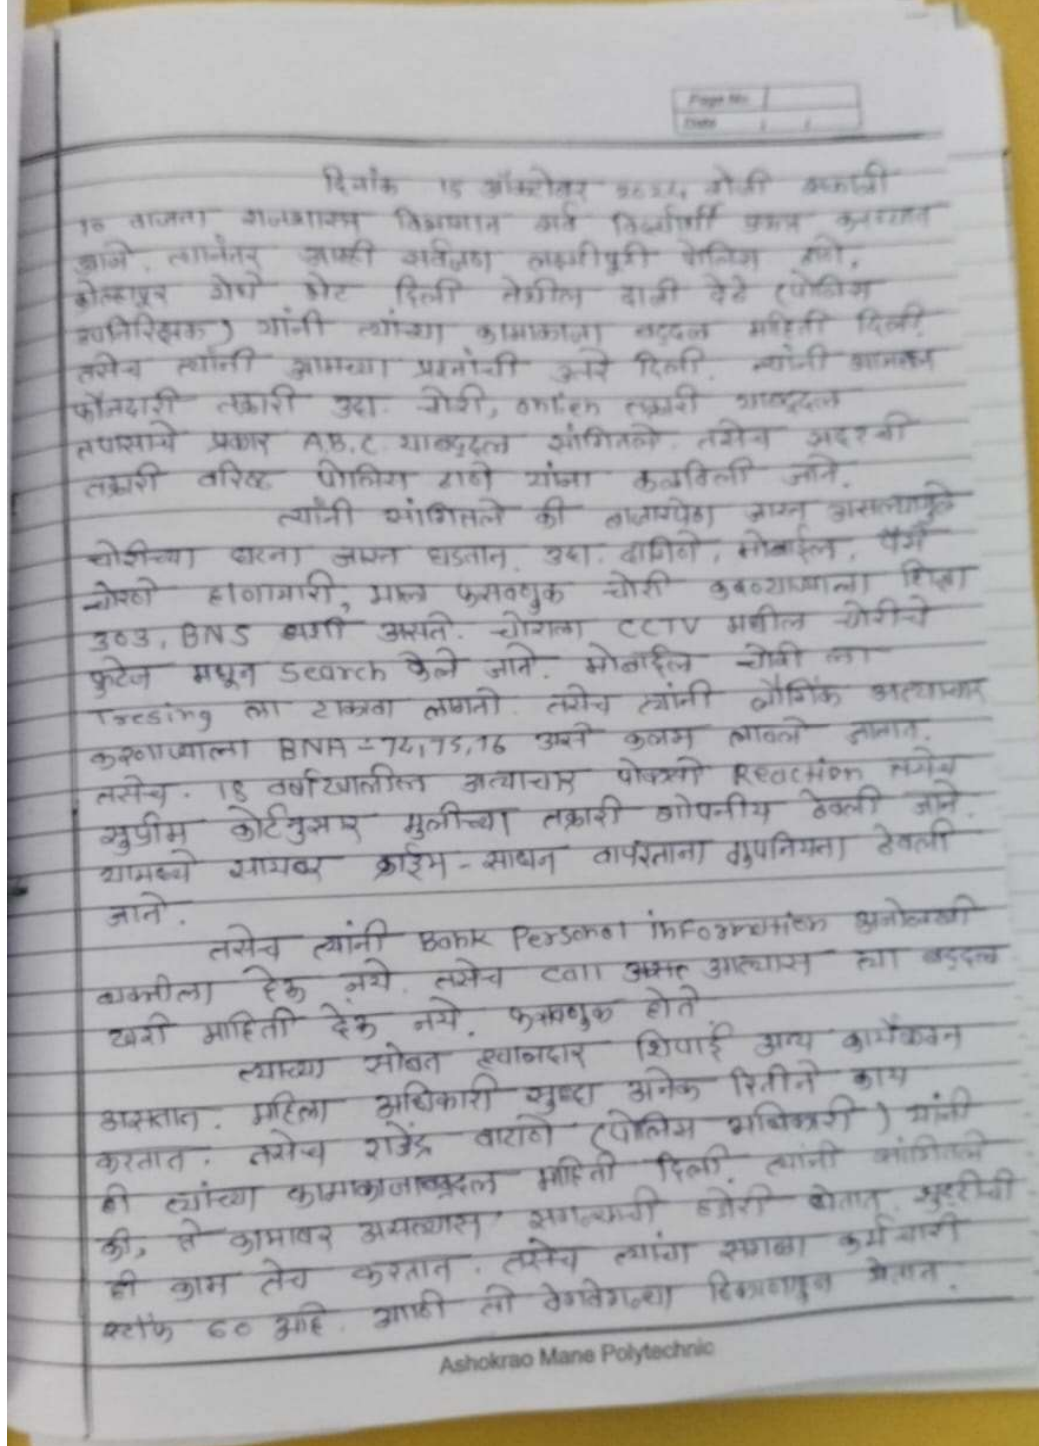 Page No.
Date
दिनांक 15 ऑक्टोबर 2024 रोजी सकाळी
10 वाजता राज्यशास्त्र विभागात सर्व विद्यार्थी एकत्र करण्यात
आले. त्यानंतर आम्ही सर्वजण लक्ष्मीपुरी पोलिस ठाणे,
कोल्हापूर येथे भेट दिली तेथील दाजी देठे (पोलिस
उपनिरिक्षक) यांनी त्यांच्या कामाकाजा बद्दल माहिती दिली.
तसेच त्यांनी आमच्या प्रश्नांची उत्तरे दिली. त्यांनी
फौजदारी तक्रारी उदा. चोरी, तक्रारी याबद्दल
तपासाचे प्रकार A,B,C. याबद्दल सांगितले. तसेच सदरची
तक्रारी वरिष्ठ पोलिस ठाणे यांना कळविली जाते.
त्यांनी सांगितले की बाजारपेठा जास्त असल्यामुळे
चोरीच्या घटना जास्त घडतात. उदा. दागिने, मोबाईल, पैसे
चोरणे हाणामारी, माल फसवणुक चोरी करणाऱ्याला शिक्षा
303, BNS अशी असते. चोराला CCTV मधील चोरीचे
फुटेज मधून Search केले जाते. मोबाईल चोरी ला
Tresing ला टाकावा लागतो. तसेच त्यांनी लैंगिक अत्याचार
करणाऱ्याला BNA = 74,75,76 असे कलम लावले जातात.
तसेच. 18 वर्षाखालील अत्याचार पोक्सो Reaction तसेच
सुप्रीम कोर्टनुसार मुलीच्या तक्रारी गोपनीय ठेवली जाते.
यामध्ये सायबर क्राईम - साधन वापरताना गुपनियता ठेवली
जाते.
तसेच त्यांनी Bank Personal information अनोळखी
व्यक्तीला देऊ नये. तसेच call आल्यास त्या बद्दल
खरी माहिती देऊ नये. फसवणुक होते.
त्याच्या सोबत हवालदार शिपाई अन्य कार्यकरत
असतात. महिला अधिकारी सुध्दा अनेक रितीने काय
करतात. तसेच राजेंद्र (पोलिस अधिकारी) यांनी
ही त्यांच्या कामाकाजाबद्दल माहिती दिली. त्यांनी सांगितले
की, ते कामावर असल्यास सगळ्यांची हजेरी घेतात.
ही काम तेच करतात. तसेच त्यांचा सगळा कर्मचारी
स्टाफ 60 आहे. आणि ती वेगवेगळ्या ठिकाणाहून येतात.
Ashokrao Mane Polytechnic